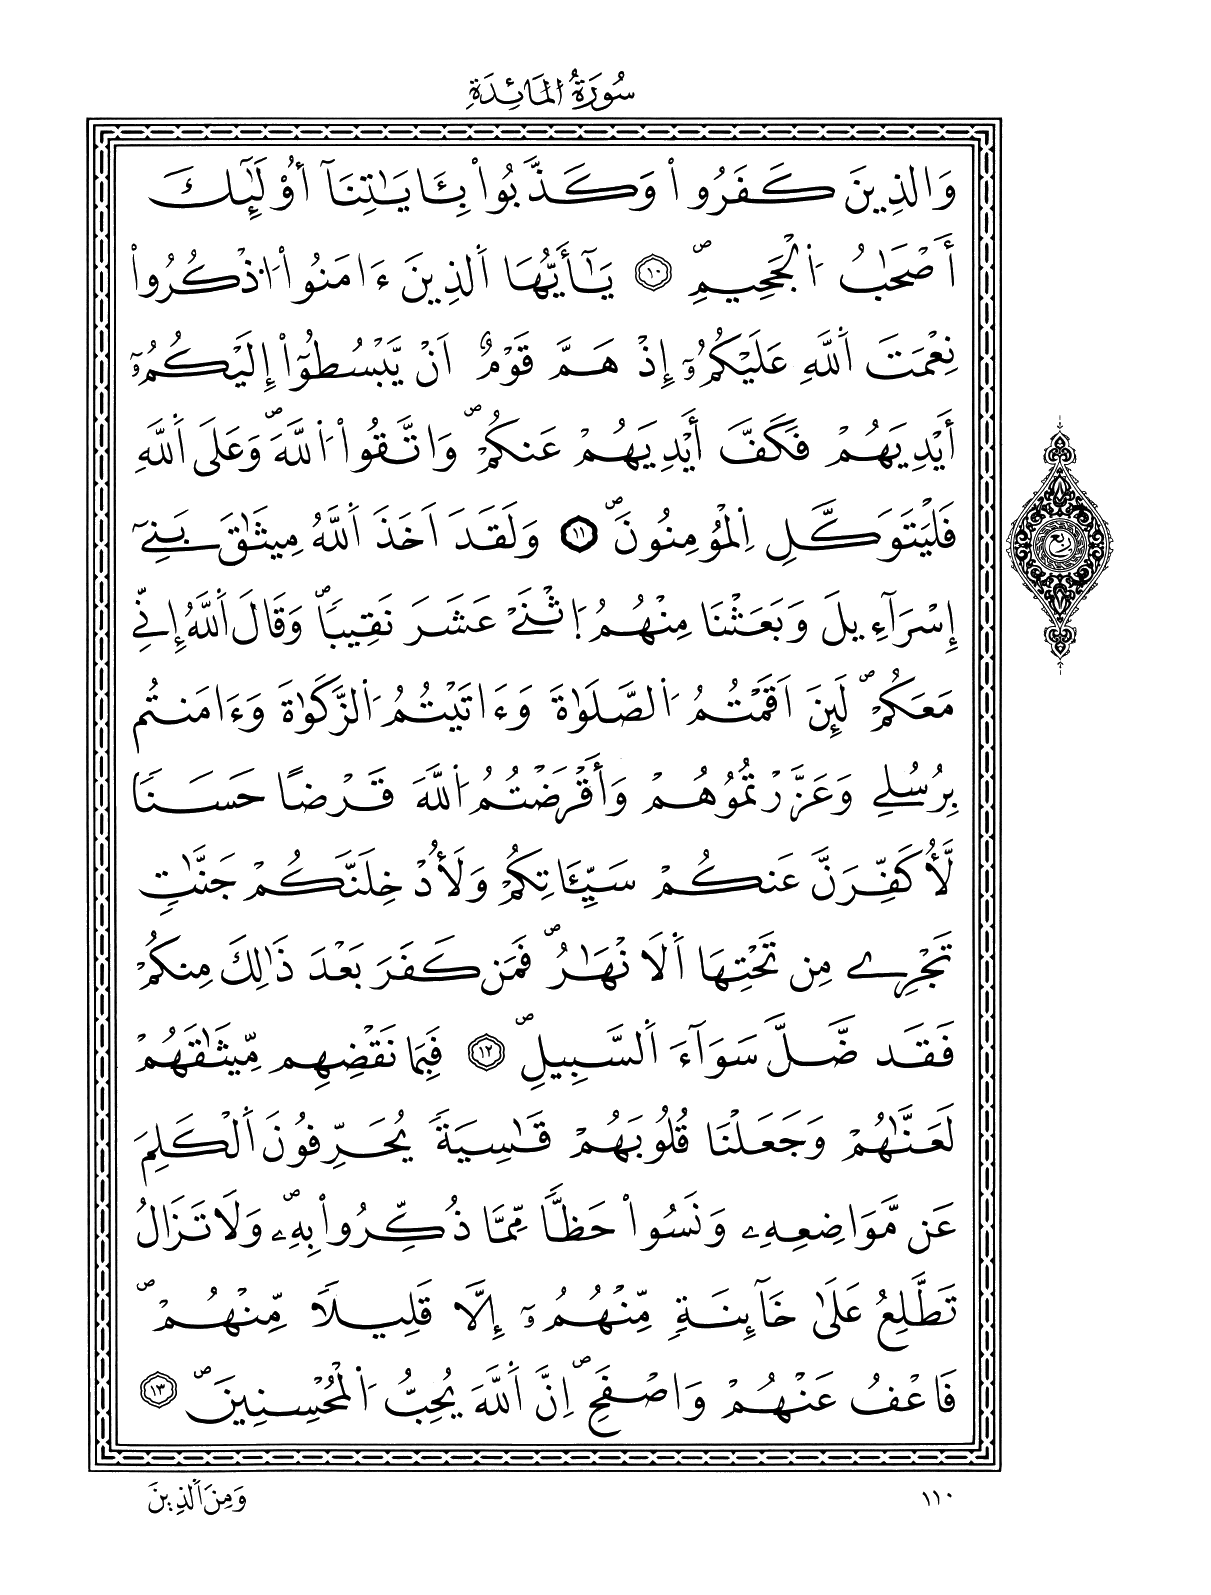 سُورَةُ المَائِدَةِ
وَالذِينَ كَفَرُواْ وَكَذَّبُواْ بِـَٔايَٰتِنَآ أُوْلَٰٓئِكَ
أَصْحَٰبُ اُ۬لْجَحِيمِۖ ١٠ يَٰٓأَيُّهَا اَ۬لذِينَ ءَامَنُواْ اُ۟ذْكُرُواْ
نِعْمَتَ اَ۬للَّهِ عَلَيْكُمُۥٓ إِذْ هَمَّ قَوْمٌ اَنْ يَّبْسُطُوٓاْ إِلَيْكُمُۥٓ
أَيْدِيَهُمْ فَكَفَّ أَيْدِيَهُمْ عَنكُمْۖ وَاتَّقُواْ اُ۬للَّهَۖ وَعَلَى اَ۬للَّهِ
فَلْيَتَوَكَّلِ اِ۬لْمُؤْمِنُونَۖ ١١ وَلَقَدَ اَخَذَ اَ۬للَّهُ مِيثَٰقَ بَنِےٓ
إِسْرَآءِيلَ وَبَعَثْنَا مِنْهُمُ اُ۪ثْنَےْ عَشَرَ نَقِيباٗۖ وَقَالَ اَ۬للَّهُ إِنِّے
مَعَكُمْۖ لَئِنَ اَقَمْتُمُ اُ۬لصَّلَوٰةَ وَءَاتَيْتُمُ اُ۬لزَّكَوٰةَ وَءَامَنتُم
بِرُسُلِے وَعَزَّرْتُمُوهُمْ وَأَقْرَضْتُمُ اُ۬للَّهَ قَرْضاً حَسَناٗ
لَّأُكَفِّرَنَّ عَنكُمْ سَيِّـَٔاتِكُمْ وَلَأُدْخِلَنَّكُمْ جَنَّٰتٖ
تَجْرِے مِن تَحْتِهَا اَ۬لَانْهَٰرُۖ فَمَن كَفَرَ بَعْدَ ذَٰلِكَ مِنكُمْ
فَقَد ضَّلَّ سَوَآءَ اَ۬لسَّبِيلِۖ ١٢ فَبِمَا نَقْضِهِم مِّيثَٰقَهُمْ
لَعَنَّٰهُمْ وَجَعَلْنَا قُلُوبَهُمْ قَٰسِيَةٗ يُحَرِّفُونَ اَ۬لْكَلِمَ
عَن مَّوَاضِعِهِۦ وَنَسُواْ حَظّاٗ مِّمَّا ذُكِّرُواْ بِهِۦۖ وَلَا تَزَالُ
تَطَّلِعُ عَلَىٰ خَآئِنَةٖ مِّنْهُمُۥٓ إِلَّا قَلِيلاٗ مِّنْهُمْۖ
فَاعْفُ عَنْهُمْ وَاصْفَحِۖ اِنَّ اَ۬للَّهَ يُحِبُّ اُ۬لْمُحْسِنِينَۖ ١٣
ربع
١١٠
وَمِنَ اَ۬لذِينَ